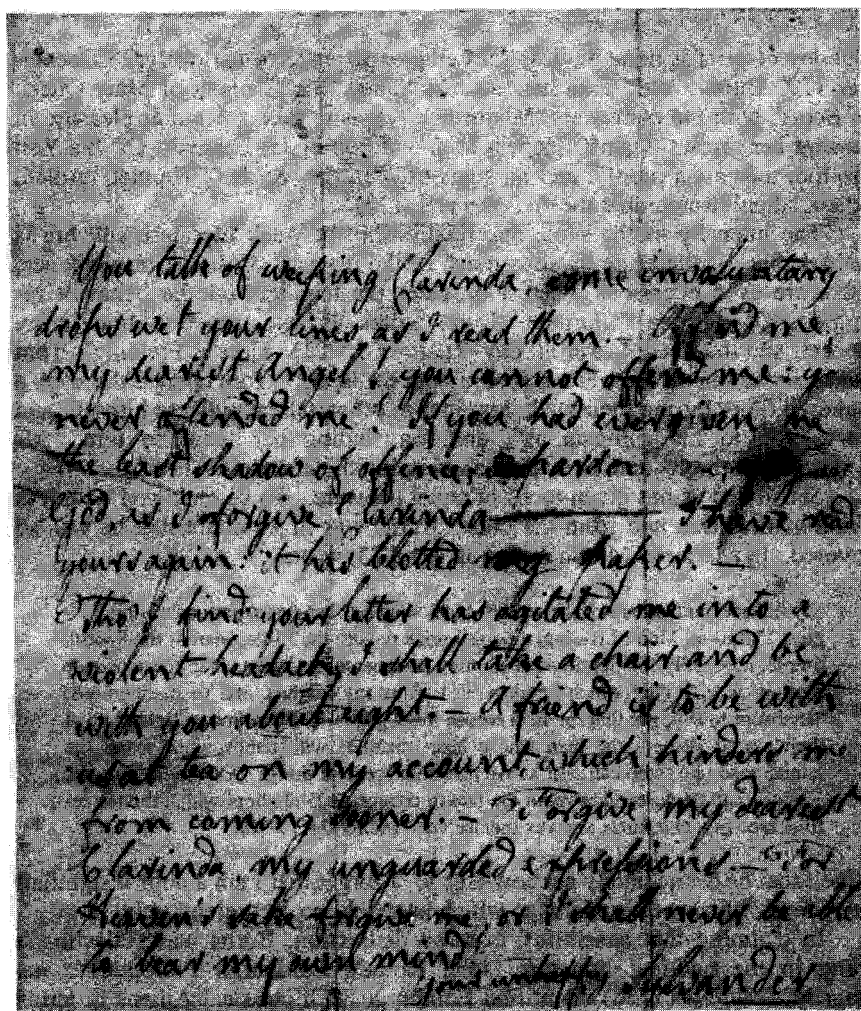 You talk of weeping Clarinda, some involuntary
drops wet your lines as I read them. — Offend me,
my dearest Angel! you cannot offend me: you
never offended me! If you had ever given me
the least shadow of offence, so pardon me,
God, as I forgive Clarinda — I have read
yours again: it has blotted my paper. —
Tho' I find your letter has agitated me into a
violent headach, I shall take a chair and be
with you about eight. — A friend is to be with
us at tea on my account, which hinders me
from coming sooner. — Forgive, my dearest
Clarinda, my unguarded expressions — For
Heaven's sake forgive me, or I shall never be able
to bear my own mind!
your unhappy Sylvander